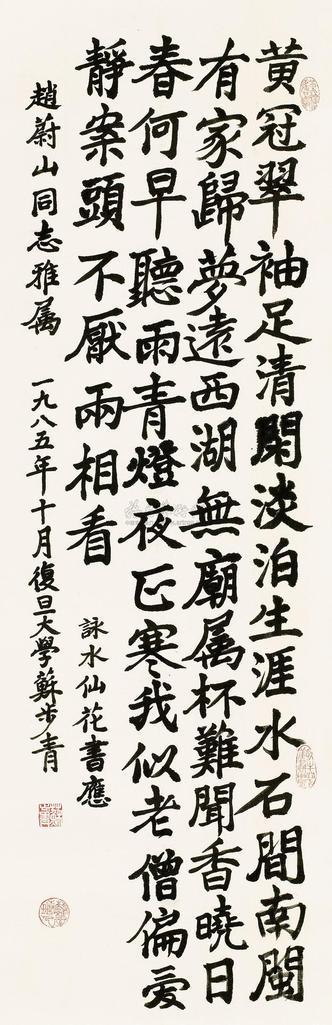 黄冠翠袖足清閑淡泊生涯水石間南閩
有家歸夢遠西湖無廟属杯難聞香曉日
春何早聽雨青燈夜正寒我似老僧偏愛
靜案頭不厭兩相看
詠水仙花書應
趙蔚山同志雅属
一九八五年十月復旦大學蘇步青